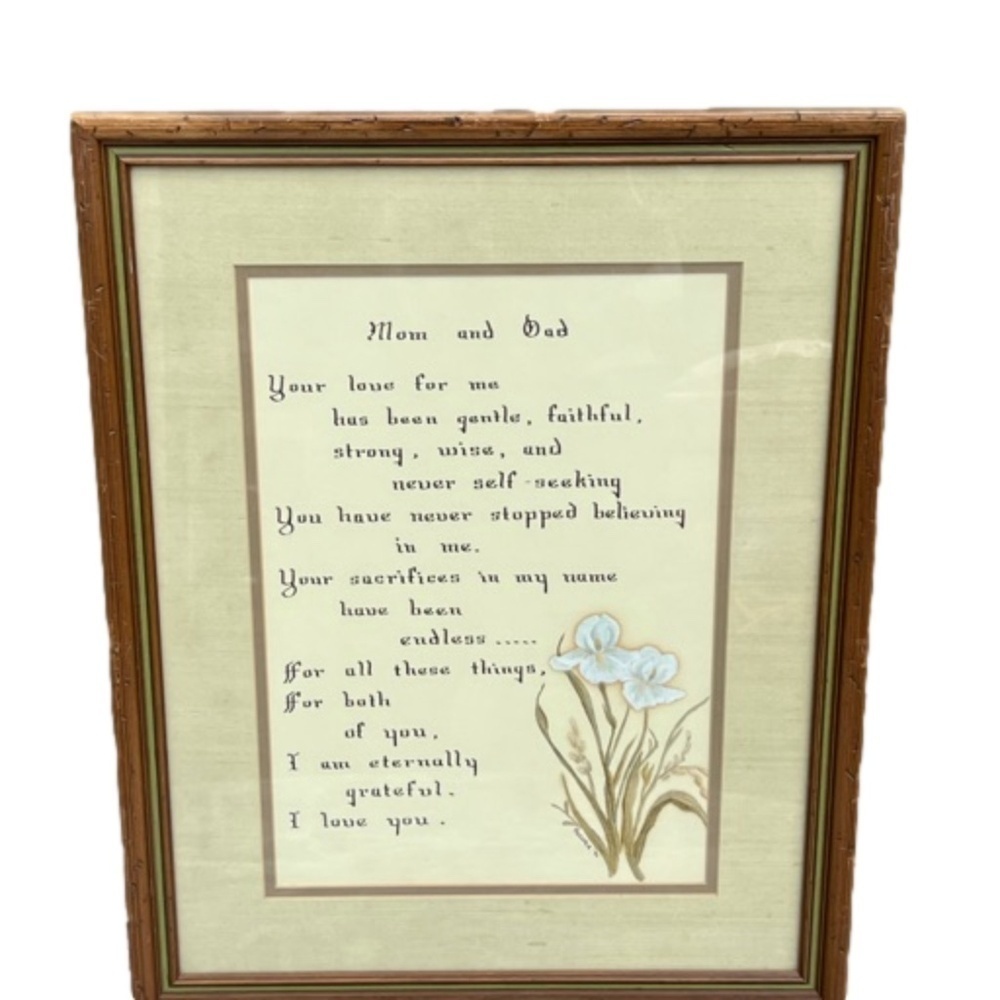 Mom and Dad
Your love for me
has been gentle, faithful,
strong, wise, and
never self-seeking
You have never stopped believing
in me.
Your sacrifices in my name
have been
endless.....
For all these things,
For both
of you,
I am eternally
grateful.
I love you.